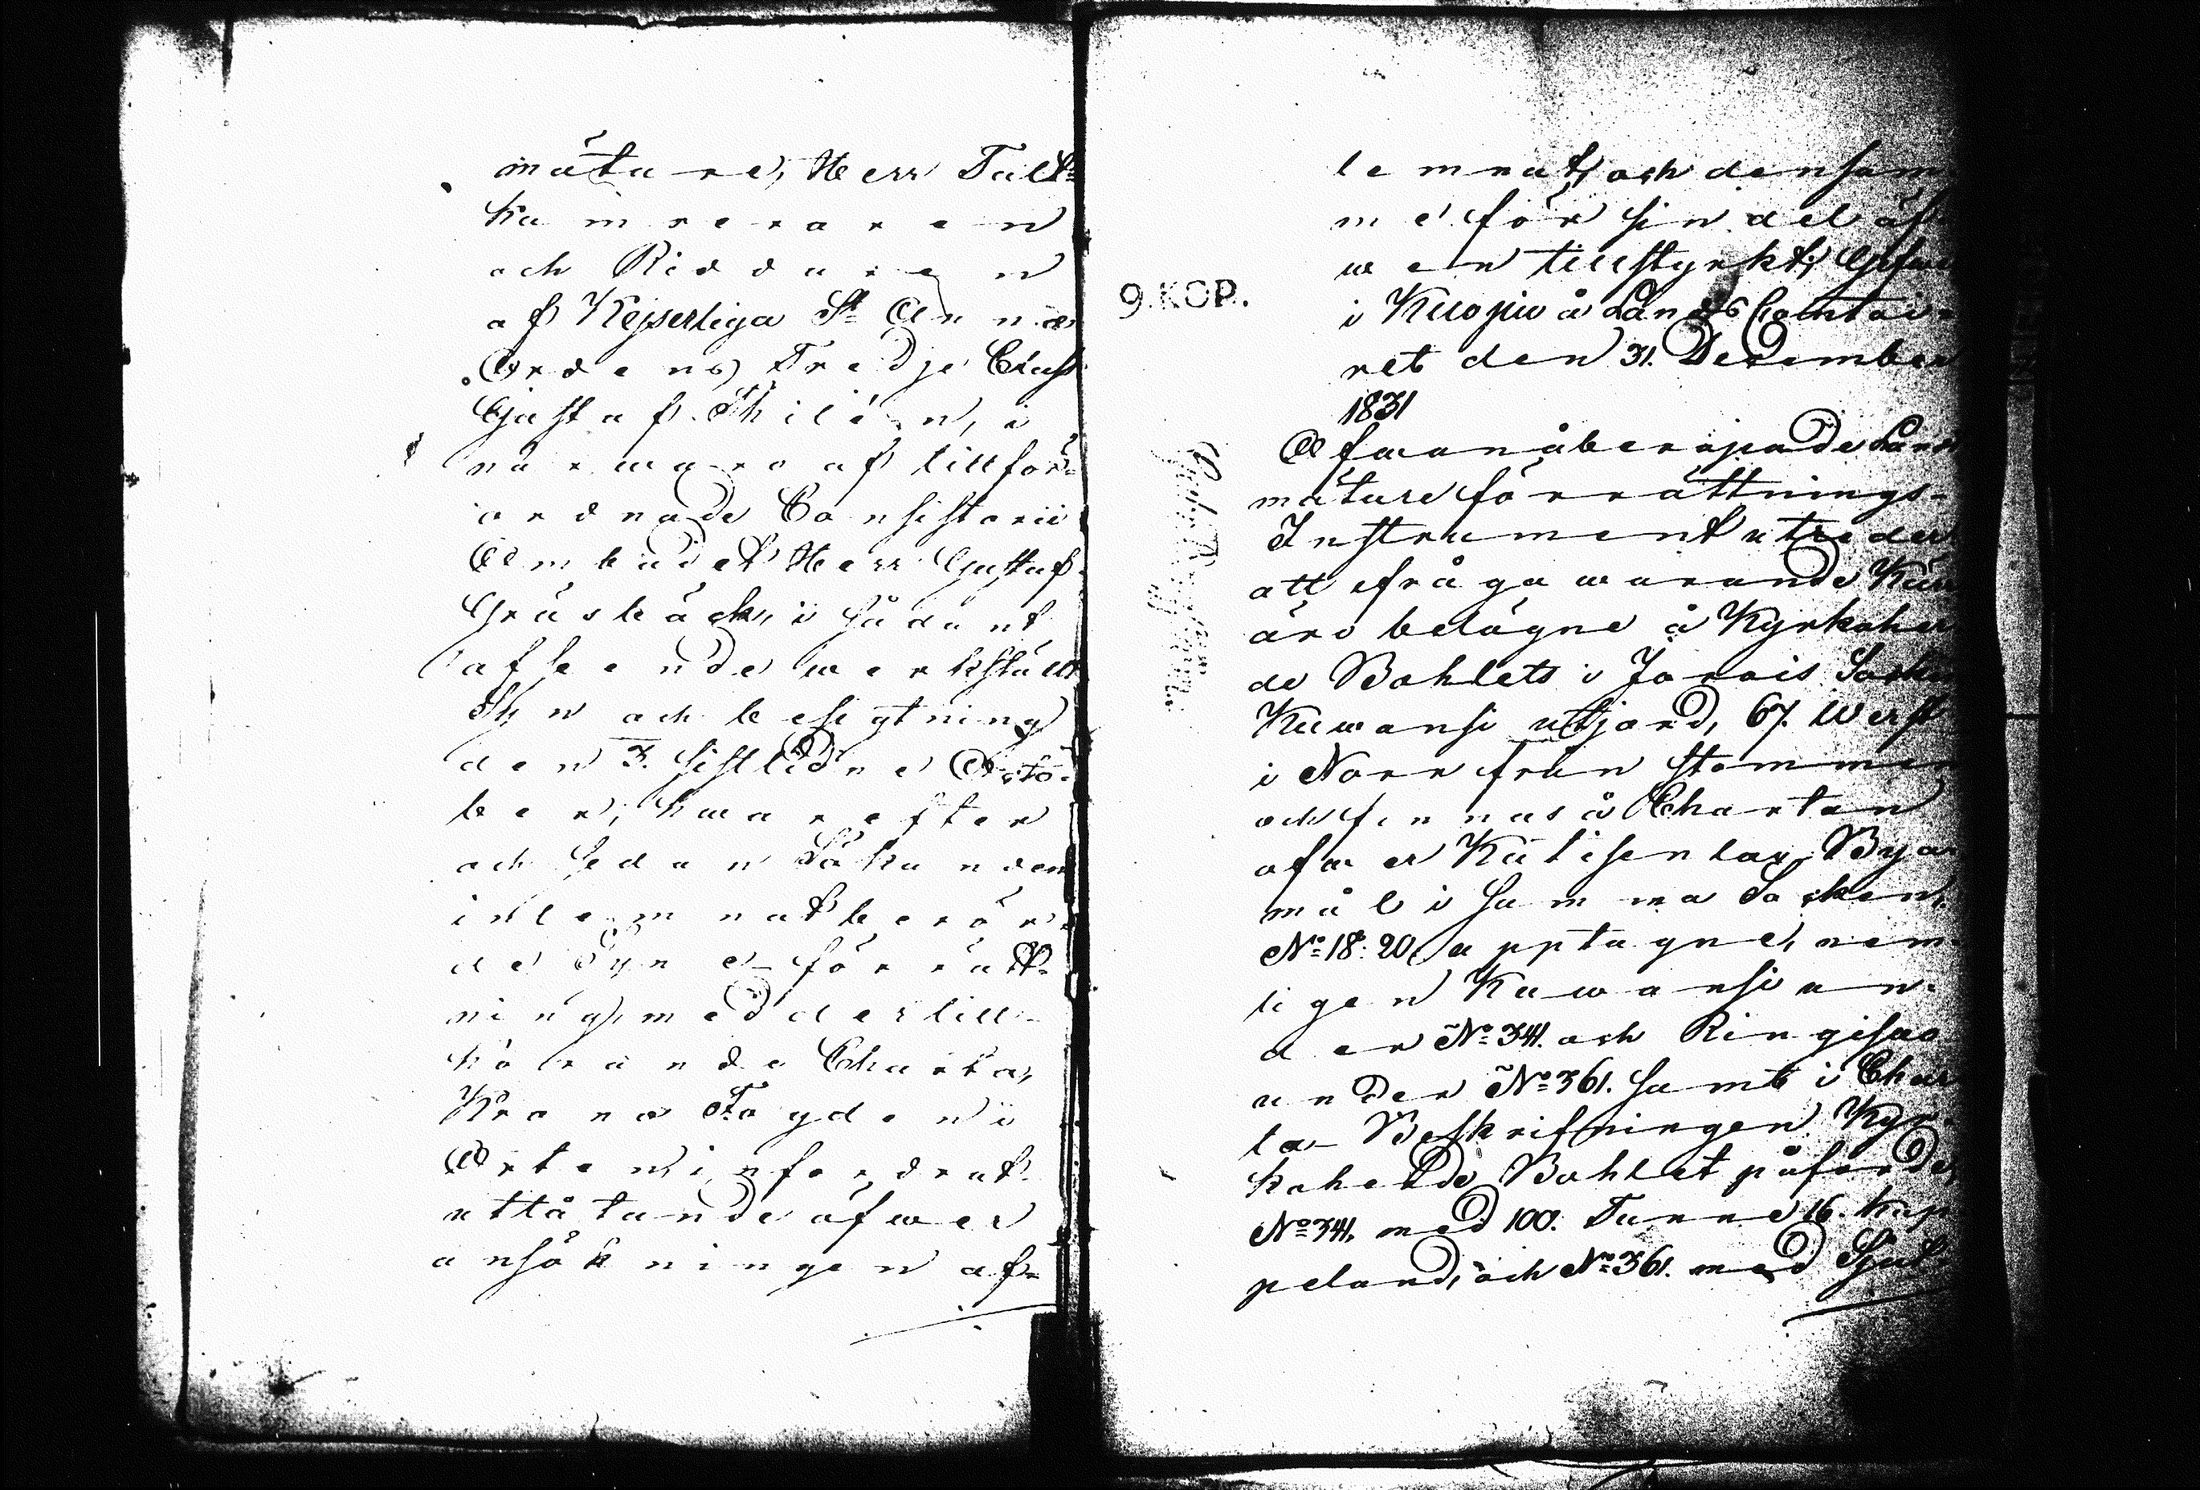 mätare, Herr Fält-
kamreraren
och Riddaren
af Kejserliga St Annæ
Ordens Tredje Class
Gustaf Thilén, i
närwaro af tillför-
ordnade Consistorii
Ombudet Herr Gustaf
Gräsbäck, i sådant
afseende werkställt
Syn och besigtning
den 3. sistledne Octo-
ber, hwarefter
och sedan Sökanden
inlemnat berör-
de Syne-förrätt-
ning, med dertill-
hörande Charta,
Krono Fogden i
Orten, infordrat
uttåtande öfwer
ansökningen af-
lemnat, och densam-
me för sin del äf-
wen tillstyrkt; Gifwet
i Kuopio å Lands Contoi-
ret den 31. December
1831
9.KOP.
Ofwanåberopade Land
mätare förrättnings-
Instrument utreder
att ifrågawarande
äro belägne å Kyrkoher
de Bohlets i Jorois Socken
Kuwansi utjord, 67. Werst
i Norr från stommen
och finnas å Chartan
öfwer Kutisenlax Bya
mål i samma Socken,
No 18: 20, upptagne, nem-
ligen Kuwansi un-
der No 341. och Ringisao
under No 361. samt i Char
ta-Beskrifningen Kyr-
koherde Bohlet påförde,
No 341. med 100. Tunne 16. Kap
peland, och No 361. med Sjut